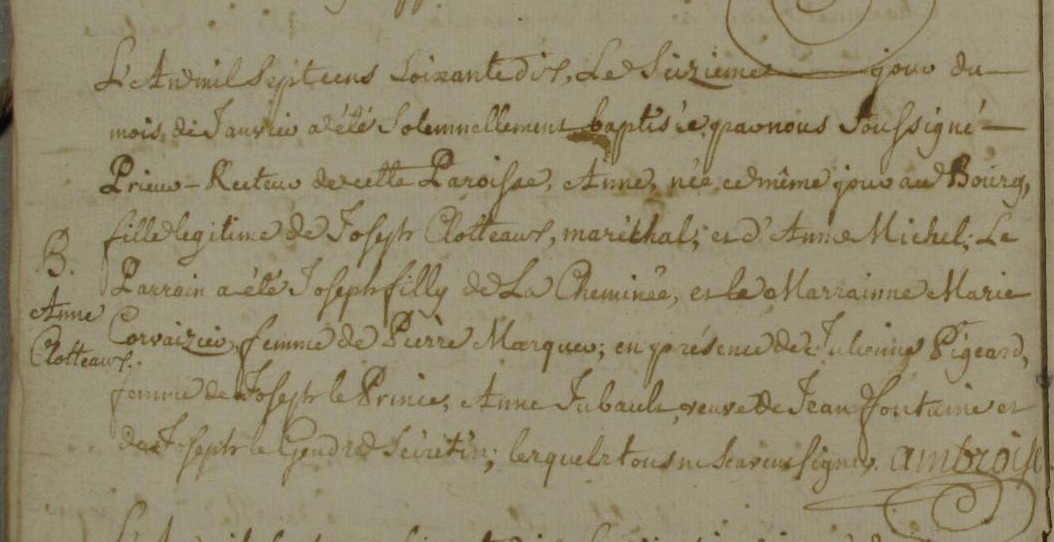 L'An mil sept cens soixante dix, Le Seizieme jour du
mois de Janvier a été Solemnellement baptisée, par nous Soussigné
Prieur-Recteur de cette Paroisse, Anne, née ce même jour au Bourg,
fille legitime de Joseph Clotteaux, maréchal; et d'Anne Michel; Le
B.
Parrain a été Joseph filly de La Cheminée, et la Marrainne Marie
Anne
Corvaizier, femme de Pierre Marquer; en présence de Julienne Pigeard,
Clotteaux.
femme de Joseph le Prince, Anne Jubault, veuve de Jean ffontaine et
de Joseph le Gendre; lesquels tous ne scavent signer. ambroise